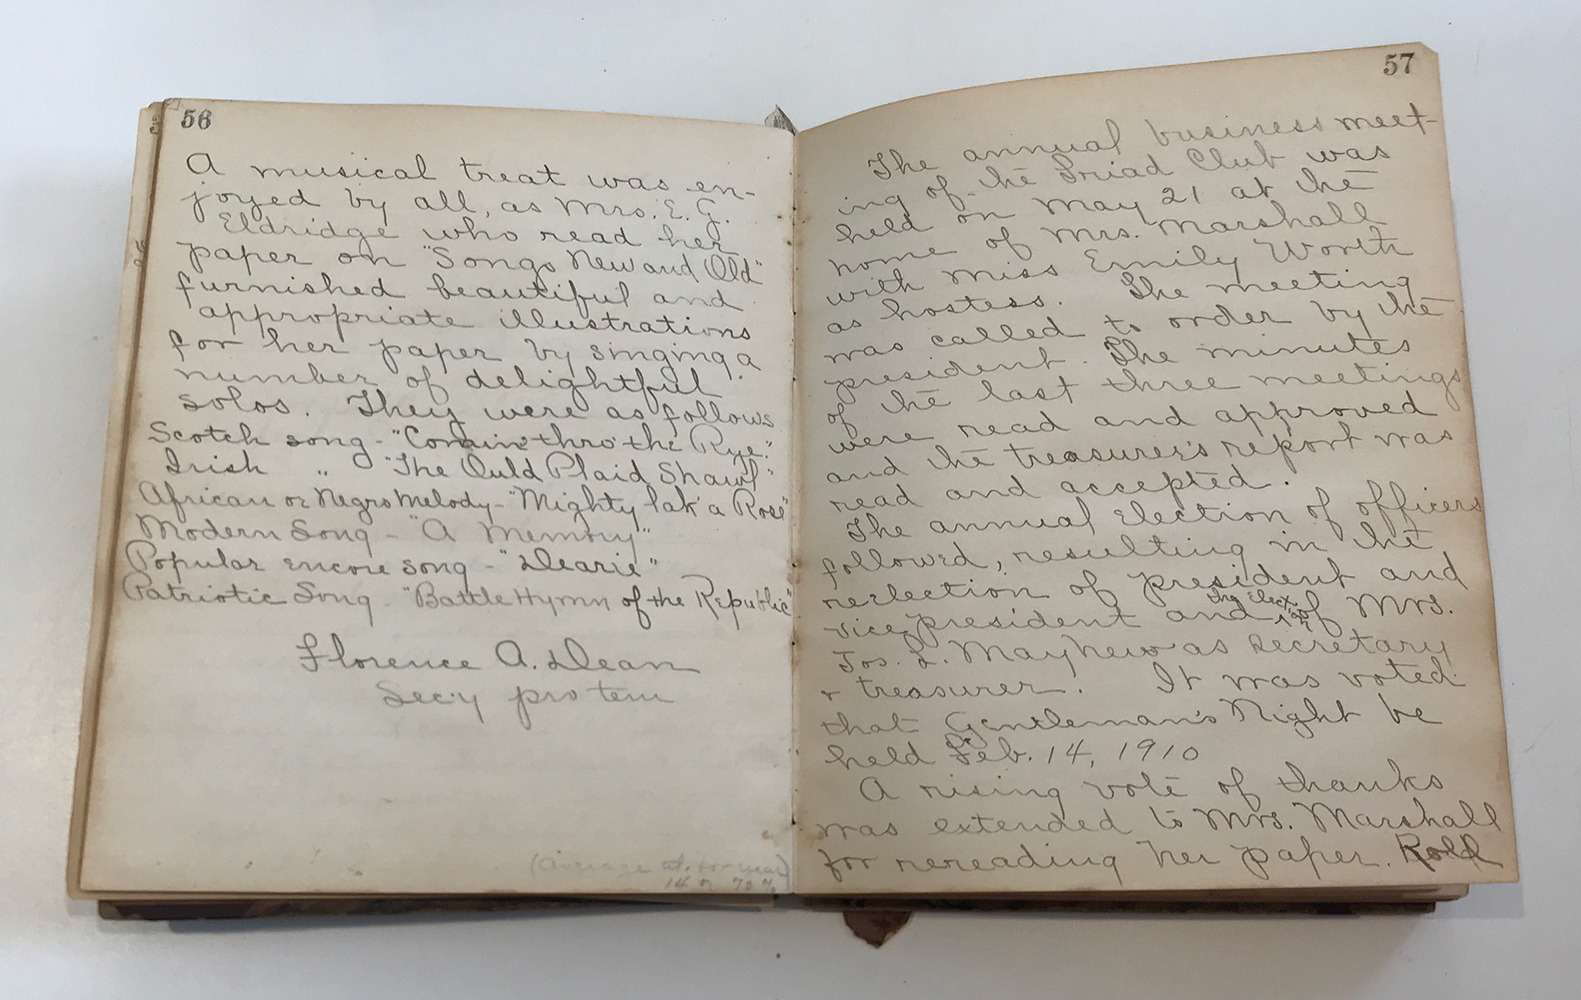 56
A musical treat was en-
joyed by all, as Mrs. E. G.
Eldridge who read her
paper on "Songs New and Old"
furnished beautiful and
appropriate illustrations
for her paper by singing a
number of delightful
solos. They were as follows
Scotch song - "Comin' thro' the Rye."
Irish " "The Ould Plaid Shawl"
African or Negro Melody - "Mighty lak' a Rose"
Modern Song - "A Memory"
Popular encore song - "Dearie"
Patriotic Song - "Battle Hymn of the Republic"
Florence A. Dean
Sec'y pro tem
(Average at. for year
14 or 70%
57
The annual business meet-
ing of the Triad Club was
held on May 21 at the
home of Mrs. Marshall
with Miss Emily Worth
as hostess. The meeting
was called to order by the
president. The minutes
of the last three meetings
were read and approved
and the treasurer's report was
read and accepted.
The annual election of officers
followed, resulting in the
reelection of president and
vice president and the election of Mrs.
Jos. L. Mayhew as secretary
+ treasurer. It was voted
that Gentleman's Night be
held Feb. 14, 1910
A rising vote of thanks
was extended to Mrs. Marshall
for rereading her paper. Roll